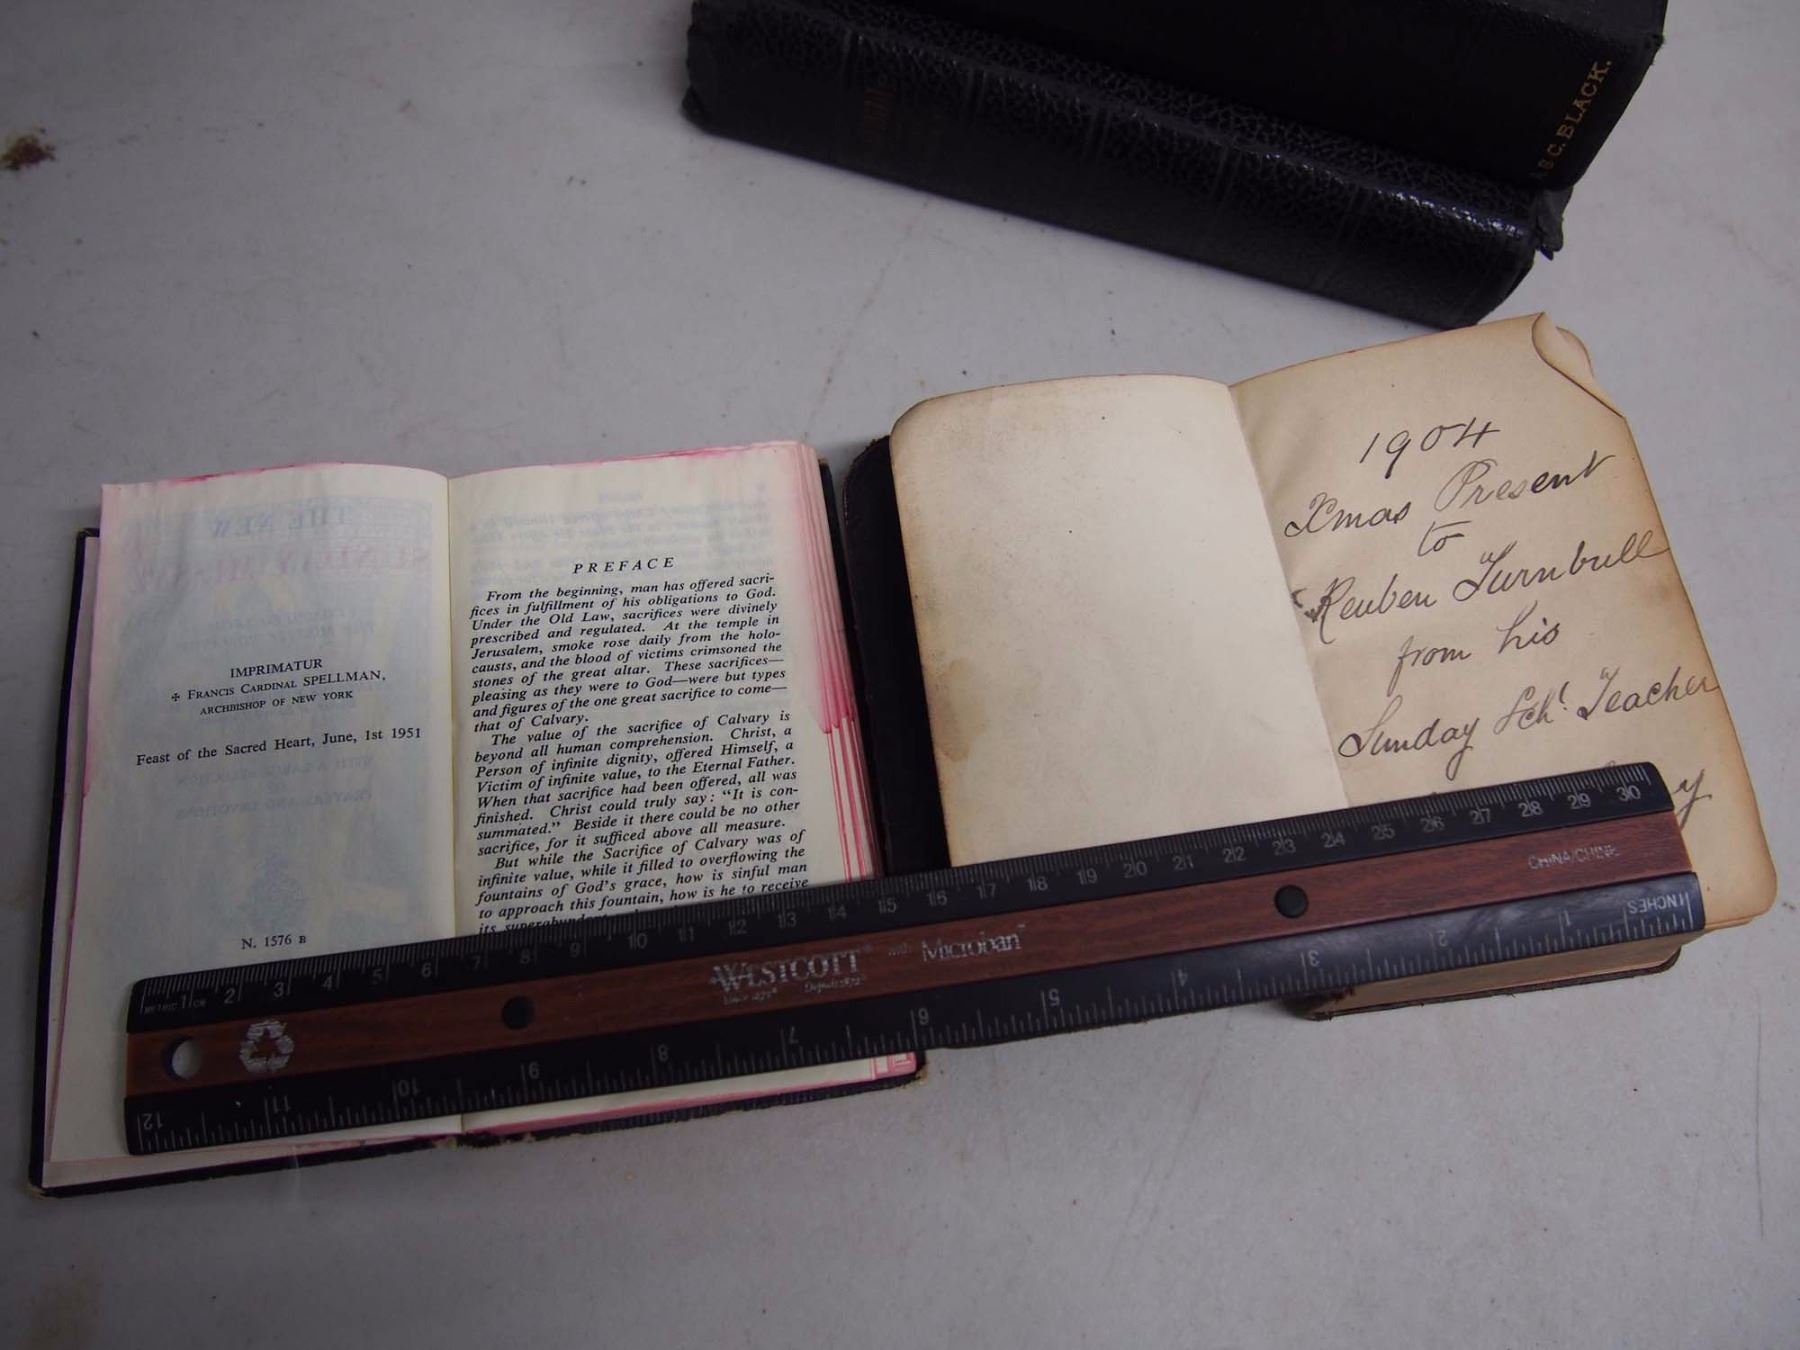 S C. BLACK.
IMPRIMATUR
✠ FRANCIS CARDINAL SPELLMAN,
ARCHBISHOP OF NEW YORK
Feast of the Sacred Heart, June, 1st 1951
N. 1576 B
PREFACE
From the beginning, man has offered sacri-
fices in fulfillment of his obligations to God.
Under the Old Law, sacrifices were divinely
prescribed and regulated. At the temple in
Jerusalem, smoke rose daily from the holo-
causts, and the blood of victims crimsoned the
stones of the great altar. These sacrifices—
pleasing as they were to God—were but types
and figures of the one great sacrifice to come—
that of Calvary.
The value of the sacrifice of Calvary is
beyond all human comprehension. Christ, a
Person of infinite dignity, offered Himself, a
Victim of infinite value, to the Eternal Father.
When that sacrifice had been offered, all was
finished. Christ could truly say: "It is con-
summated." Beside it there could be no other
sacrifice, for it sufficed above all measure.
But while the Sacrifice of Calvary was of
infinite value, while it filled to overflowing the
fountains of God's grace, how is sinful man
to approach this fountain, how is he to receive
its
1904
Xmas Present
to
Reuben Turnbull
from his
Sunday Sch! Teacher
METRIC 1 CM 2 3 4 5 6 7 8 9 10 11 12 13 14 15 16 17 18 19 20 21 22 23 24 25 26 27 28 29 30
WESTCOTT with Microban
Since 1872 Depuis 1872
CHINA/CHINE
INCHES 1 2 3 4 5 6 7 8 9 10 11 12